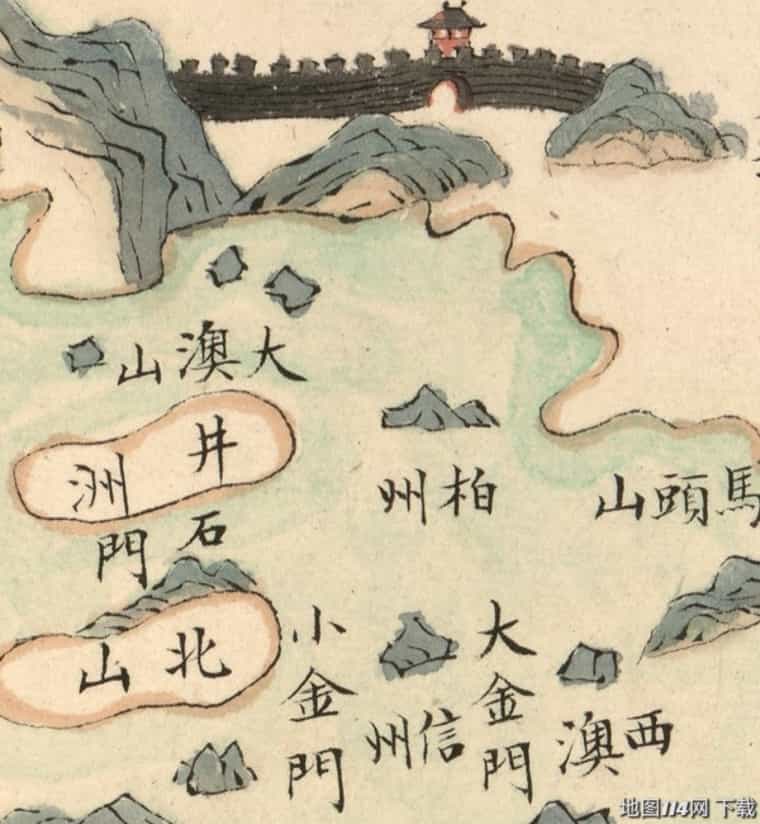 大澳山
井洲
石門
柏州
馬頭山
北山
小金門
信州
大金門
西澳
地图114网 下载